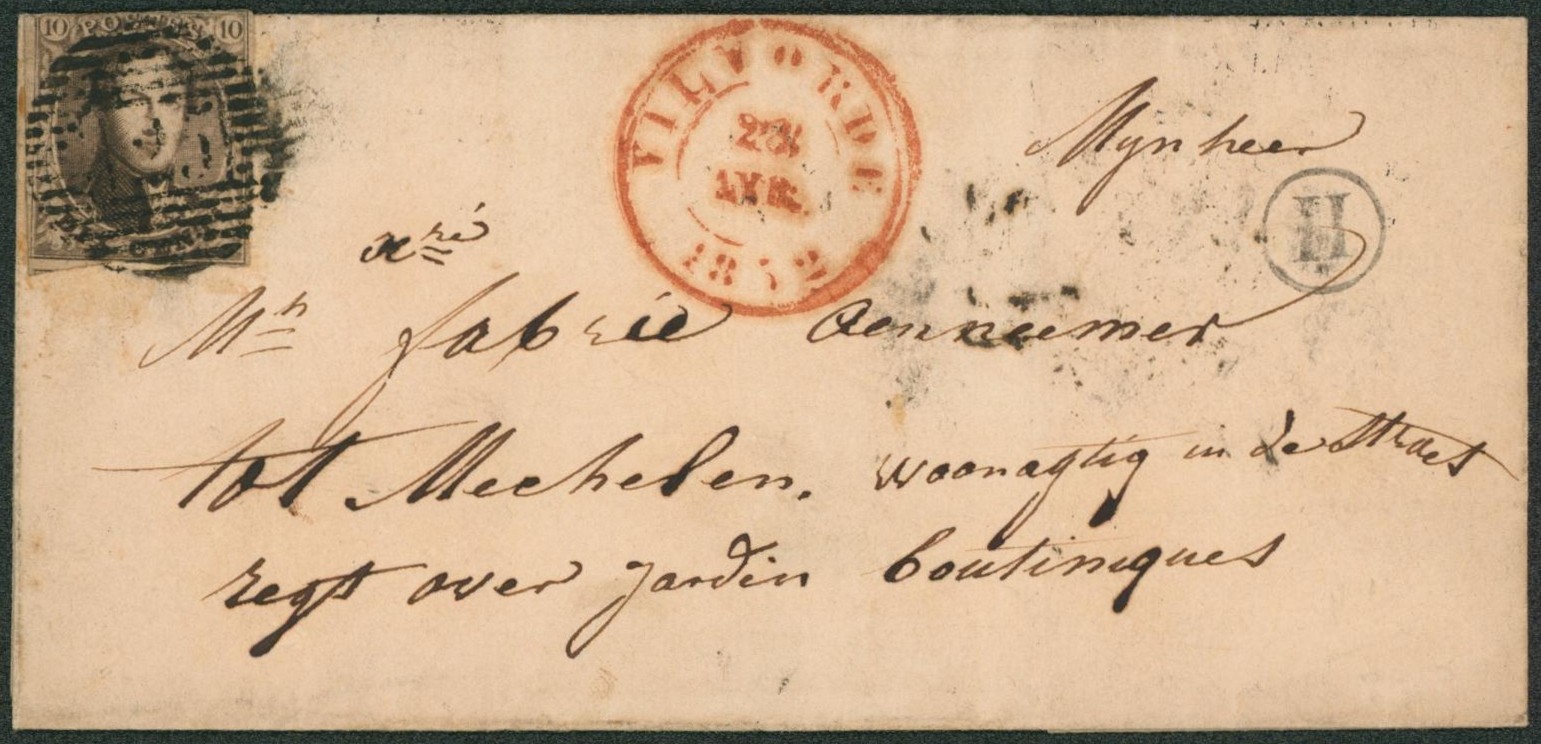 10 POSTES 10
VILVORDE
28
AVR.
1852
Mynheer
H
Mr fabrié Aenneemer
tot Mechelen. woonagtig in de Straet
regt over Jardin boutiniques